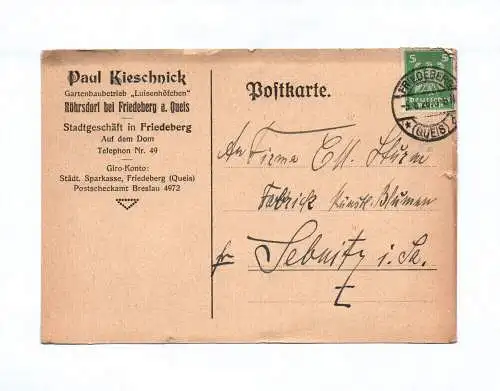 Paul Kieschnick
Gartenbaubetrieb „Luisenhöfchen“
Röhrsdorf bei Friedeberg a. Queis
Stadtgeschäft in Friedeberg
Auf dem Dom
Telephon Nr. 49
Giro-Konto:
Städt. Sparkasse, Friedeberg (Queis)
Postscheckamt Breslau 4972
Postkarte.
5 5
FRIEDEBERG
(QUEIS)
An Firma Sturm
Fabrick künstl. Blumen
Sebnitz i. Sa.